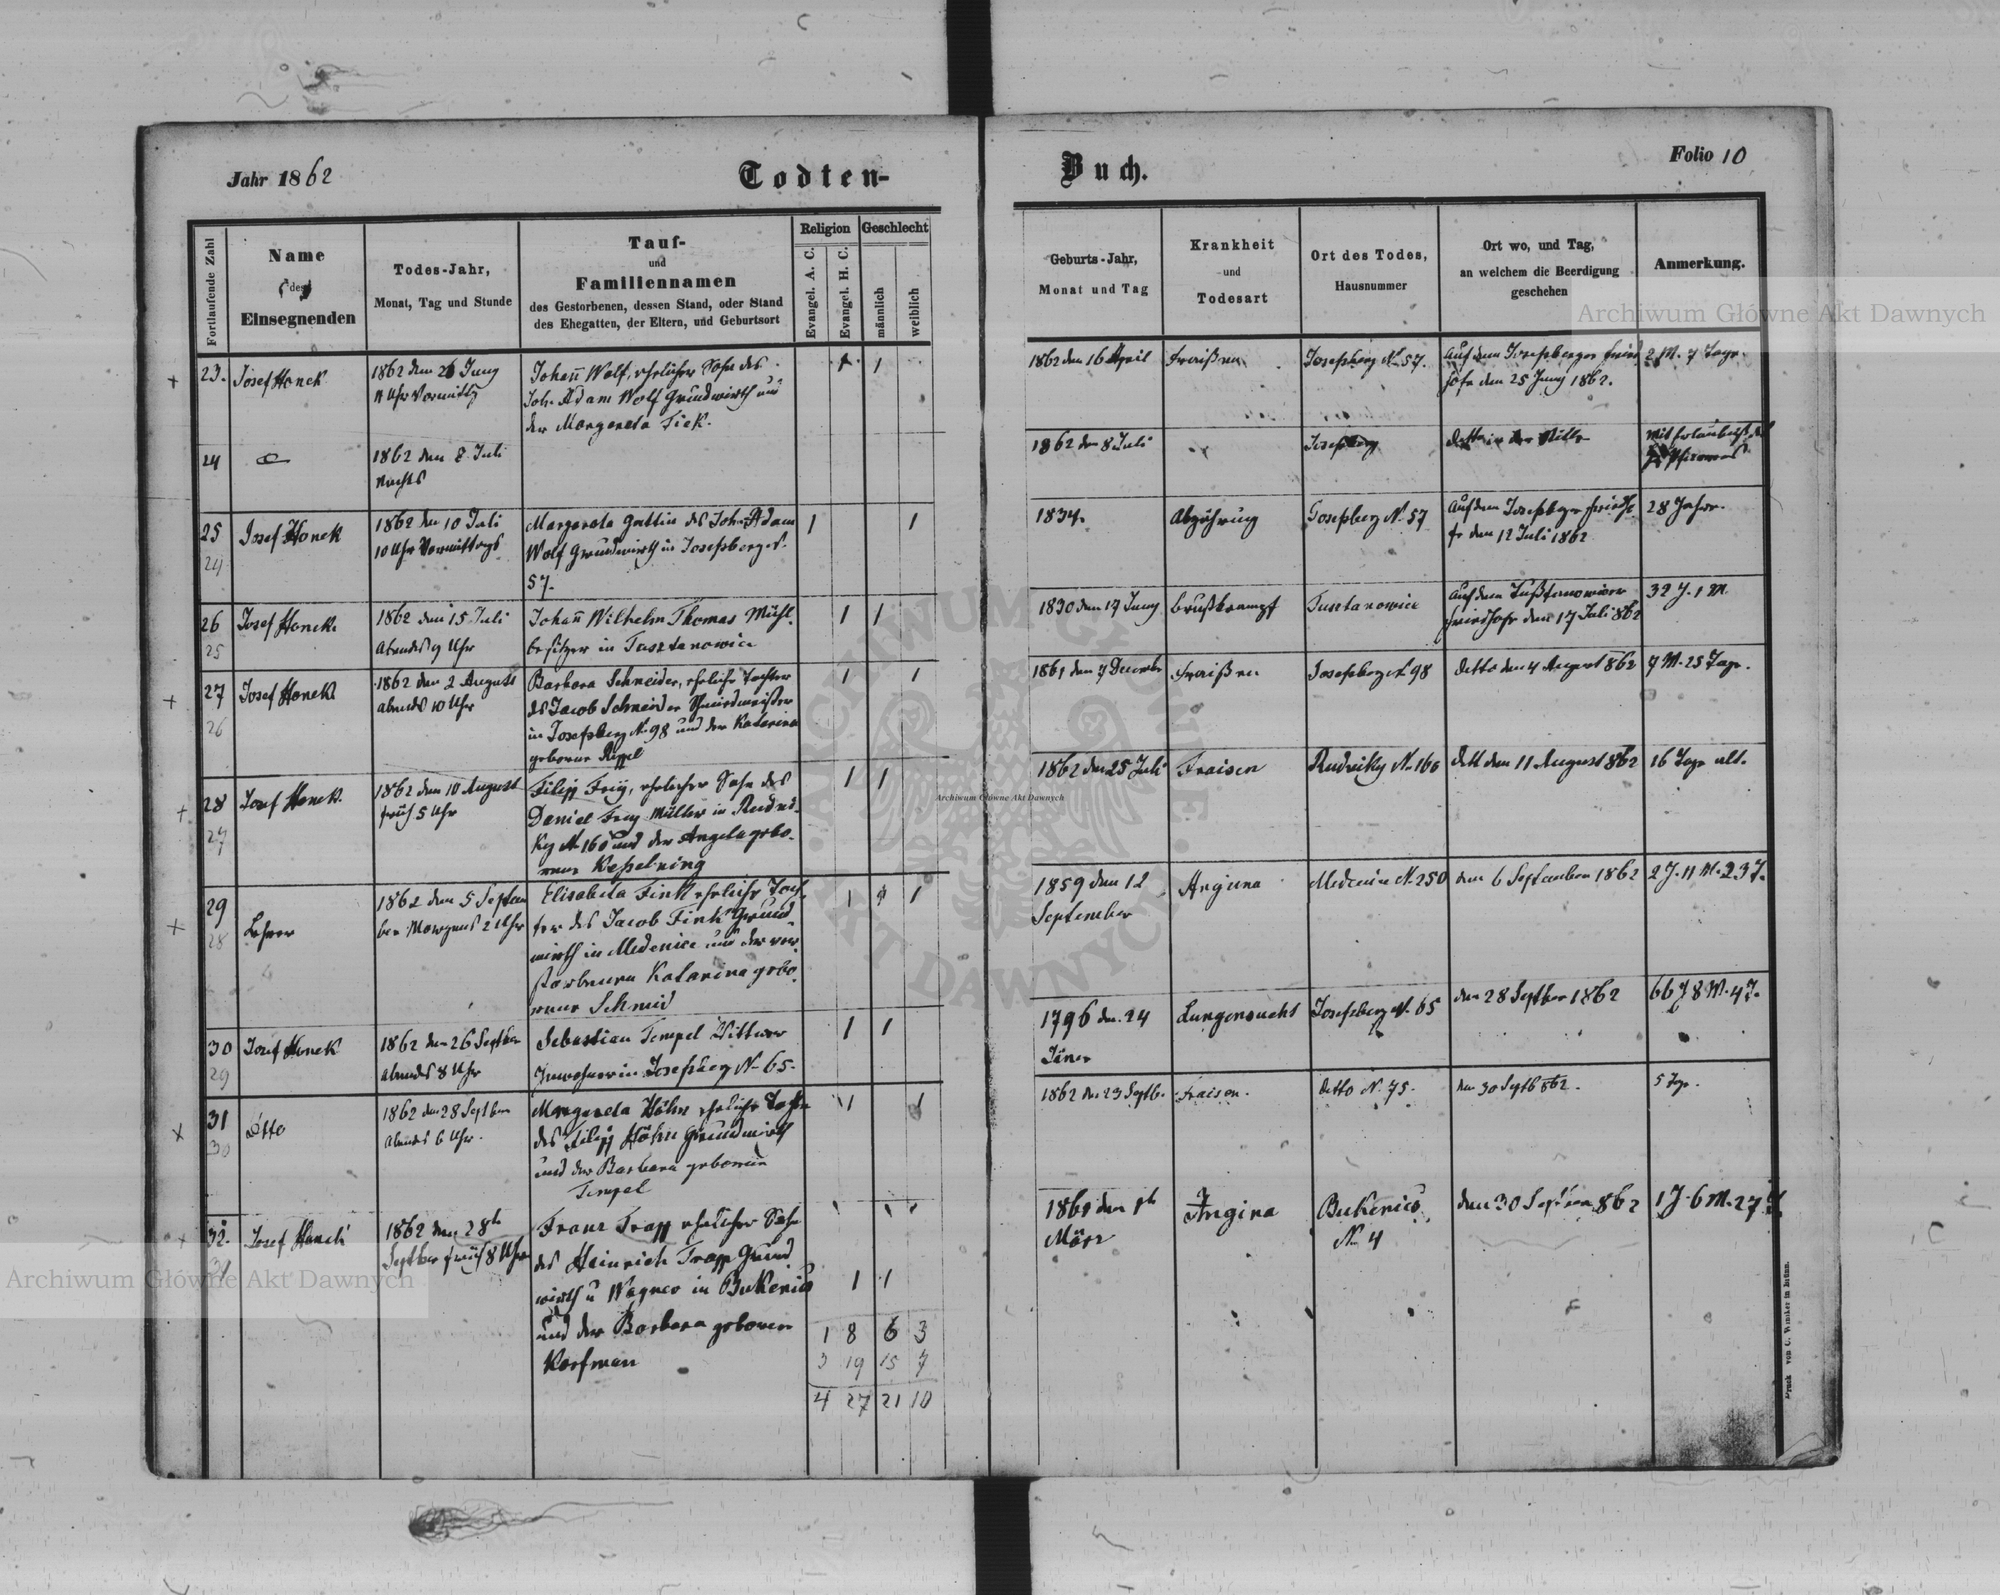 Jahr 1862
Todten-
Buch.
Folio 10
Fortlaufende Zahl
Name
des
Einsegnenden
Todes-Jahr,
Monat, Tag und Stunde
Tauf-
und
Familiennamen
des Gestorbenen, dessen Stand, oder Stand
des Ehegatten, der Eltern, und Geburtsort
Religion
Evangel. A. C.
Evangel. H. C.
Geschlecht
männlich
weiblich
Geburts-Jahr,
Monat und Tag
Krankheit
und
Todesart
Ort des Todes,
Hausnummer
Ort wo, und Tag,
an welchem die Beerdigung
geschehen
Anmerkung.
23. Josef Honek
1862 den Juny
11 Uhr Vormittg
Johañ Wolf, ehelicher Sohn des
Joh. Adam Wolf Grundwirth und
der Margareta Fiek.
1
1862 den 16 April
Fraißen
Josefsberg N. 57.
Auf dem Josefsberger Fried
hofe den 25 Juny 1862.
2 M. 7 Tage.
24
1862 den 8. Juli
Nachts
1862 den 8 Juli
Josefsberg
25
24
Josef Honek
1862 den 10 Juli
10 Uhr Vormittags
Margareta Gattin des Joh. Adam
Wolf Grundwirth in Josefsberg N.
57.
1 1
1834.
Abzehrung
Josefsberg N. 57
Auf dem Josefsberger Friedho
fe den 12 Juli 1862
28 Jahre.
26
25
Josef Honek
1862 den 15 Juli
Abends 9 Uhr
Johañ Wilhelm Thomas Mühl
besitzer in Tustanowice
1 1
1830 den 17 Juny
Brustkrampf
Tustanowice
Auf dem
Friedhofe den 17 Juli 862
32 J. 1 M
27
26
Josef Honek
1862 den 2 August
Abends 10 Uhr
Barbara Schneider, eheliche Tochter
des Jacob Schneider
in Josefsberg N. 98 und der Katarina
geborene Rippel
1 1
1861 den 7 December
Fraißen
Josefsberg N 98
detto den 4 August 862
7 M. 25 Tage.
28
27
Josef Honek.
1862 den 10 August
früh 5 Uhr
Filipp Frey, ehelicher Sohn des
Daniel Frey Müller in Rudni-
ky N. 160 und der Angela gebo-
rene Kesselring
1 1
1862 den 25 Juli
Fraisen
Rudniky N. 160
dett den 11 August 862
16 Tage alt.
29
28
Lehrer
1862 den 5 Septem
ber Morgens 2 Uhr
Elisabeta Fink eheliche Toch-
ter des Jacob Fink Grund-
wirth in Medenice und der ver-
storbenen Katarina gebo-
rene Schmid
1 1
1859 den 12
September
Angina
Medenice N. 250
den 6 September 1862
2 J. 11 M. 23 T.
30
29
Josef Honek
1862 den 26 Septber
Abends 8 Uhr
Sebastian Tempel Wittwer
Inwohner in Josefsberg N. 65.
1 1
1796 den 24
Jäner
Lungensucht
Josefsberg N. 65
den 28 Septber 1862
66 J 8 M. 4 T.
31
30
Dtto
1862 den 28 Septber
Abends 6 Uhr.
Margareta Höhn eheliche Tochter
des Filipp Höhn Grundwirth
und der Barbara geborene
Tempel
1 1
1862 den 23 Septb.
Fraisen.
detto N. 75.
den 30 Septb 862.
5 Tge.
32.
31
Josef Honek
1862 den 28ten
Septber früh 8 Uhr
Franz Trapp ehelicher Sohn
des Heinrich Trapp Grund
wirth u Wagner in Bukenice
und der Barbara geborene
Korfman
1 1
den
März
Angina
Bukenice
N. 4
den 30 September 862
1 J. 6 M. 27 T
1 8 6 3
3 19 15 7
4 27 21 10
Druck von C. Winiker in Brünn.
Archiwum Główne Akt Dawnych
Archiwum Główne Akt Dawnych
Archiwum Główne Akt Dawnych
ARCHIWUM GŁÓWNE
AKT DAWNYCH